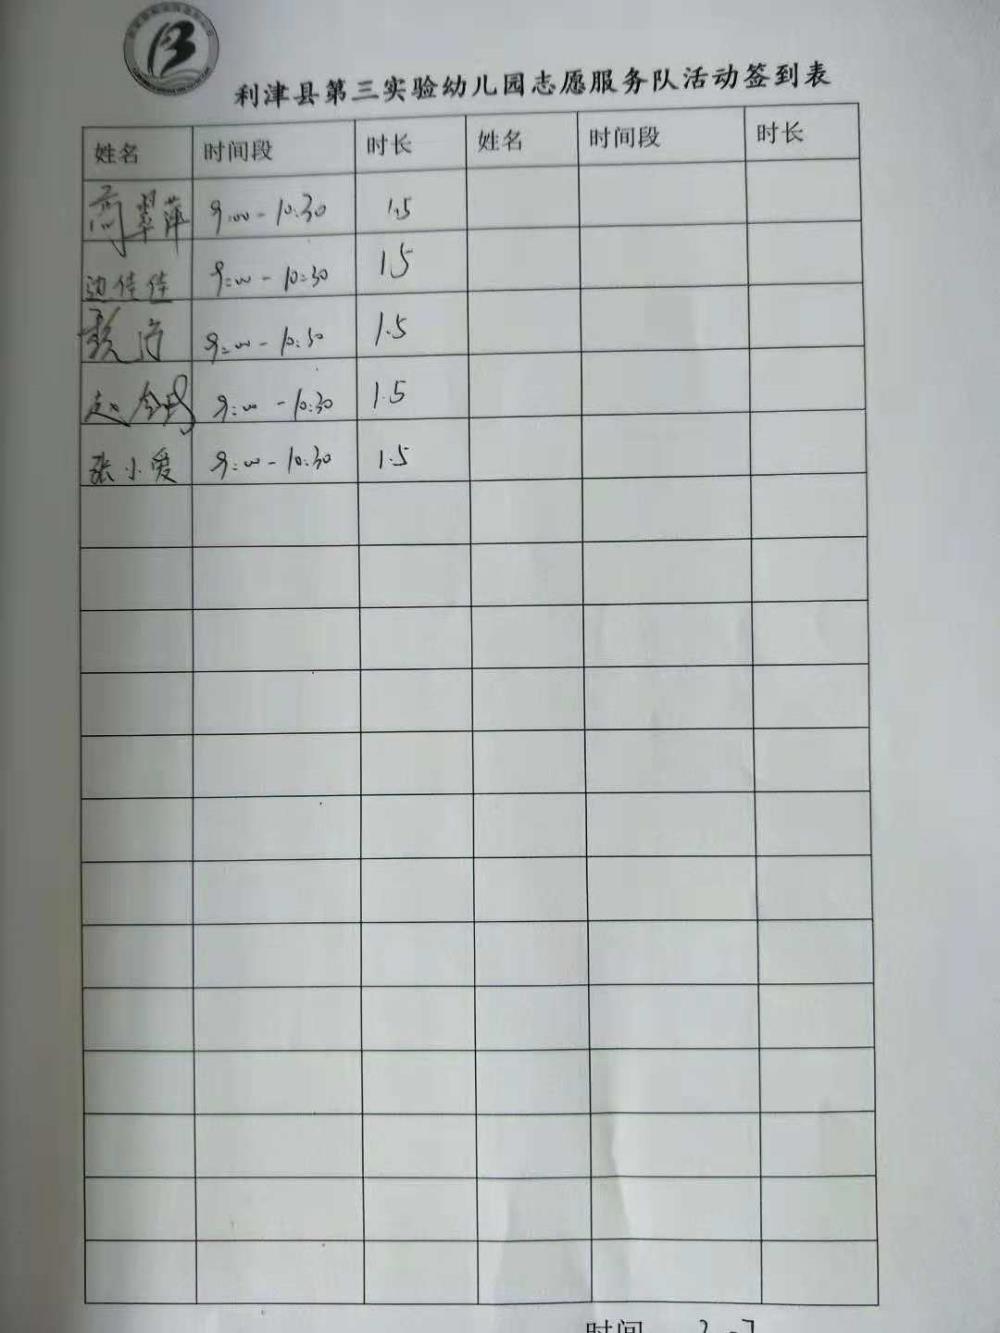 利津县第三实验幼儿园志愿服务队活动签到表
姓名 时间段 时长 姓名 时间段 时长
高翠萍 9:00-10:30 1.5
边佳佳 9:00-10:30 1.5
9:00-10:30 1.5
赵 9:00-10:30 1.5
张小爱 9:00-10:30 1.5
时间